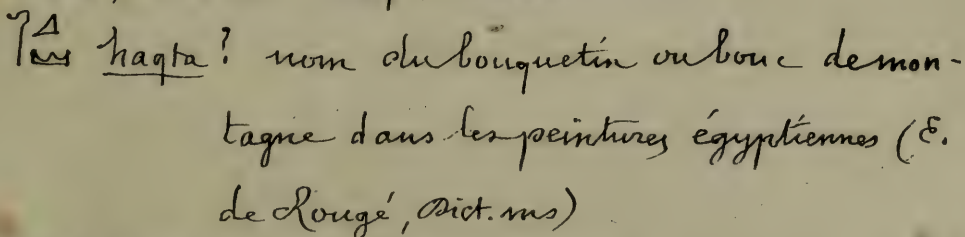 haqta ? nom du bouquetin ou bouc de mon-
tagne dans les peintures égyptiennes (E.
de Rougé, Dict. ms)